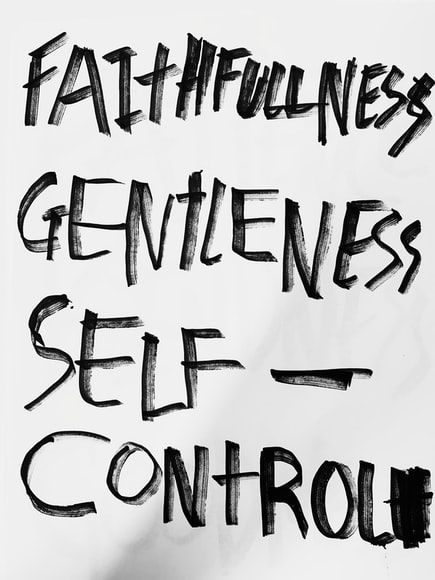 FAItHFULLNESS
GENtLENESS
SELF —
CONtROL